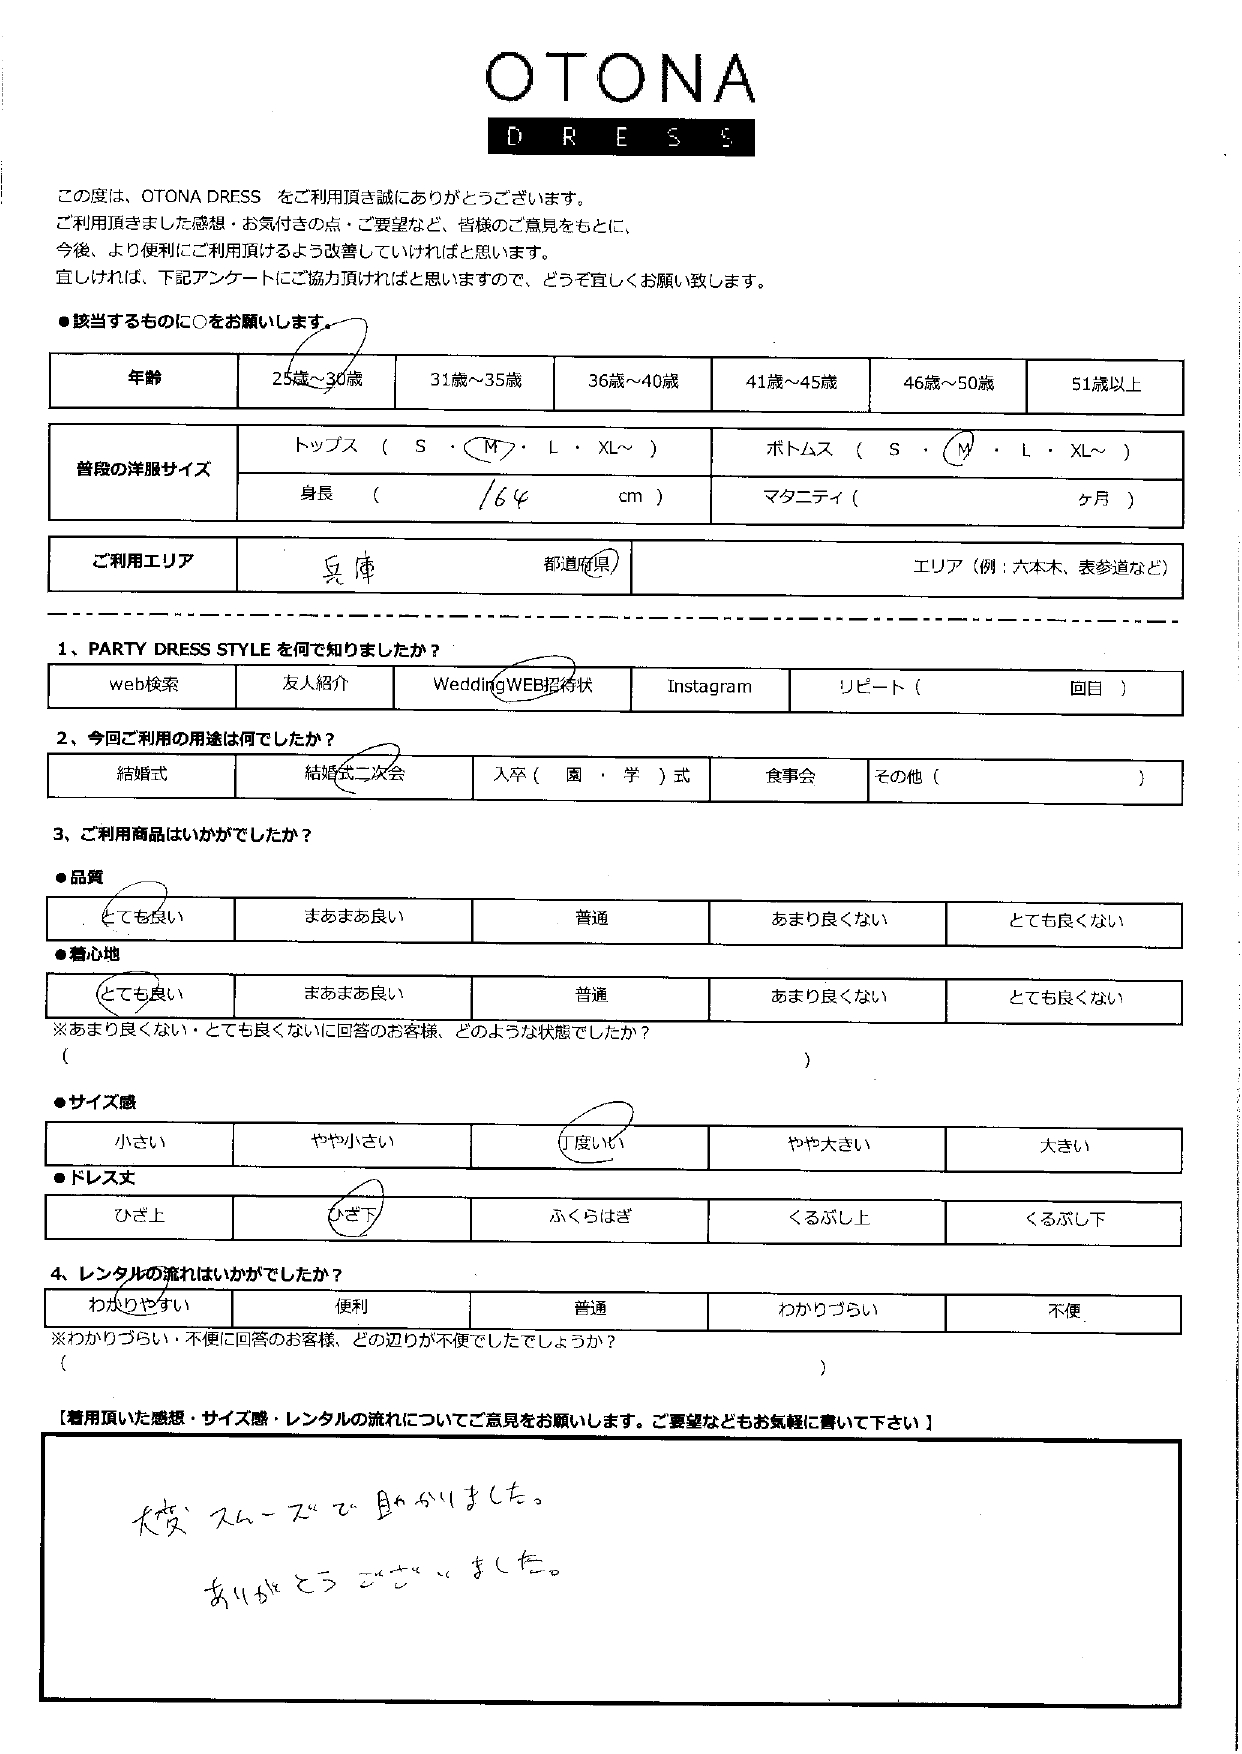 OTONA
DRESS
この度は、OTONA DRESS をご利用頂き誠にありがとうございます。
ご利用頂きました感想・お気付きの点・ご要望など、皆様のご意見をもとに、
今後、より便利にご利用頂けるよう改善していければと思います。
宜しければ、下記アンケートにご協力頂ければと思いますので、どうぞ宜しくお願い致します。
●該当するものに○をお願いします。
年齢 25歳～30歳 31歳～35歳 36歳～40歳 41歳～45歳 46歳～50歳 51歳以上
普段の洋服サイズ トップス ( S ・ M ・ L ・ XL～ ) ボトムス ( S ・ M ・ L ・ XL～ )
身長 ( 164 cm ) マタニティ ( ヶ月 )
ご利用エリア 兵庫 都道府県 エリア（例：六本木、表参道など）
1、PARTY DRESS STYLE を何で知りましたか？
web検索 友人紹介 WeddingWEB招待状 Instagram リピート ( 回目 )
2、今回ご利用の用途は何でしたか？
結婚式 結婚式二次会 入卒 ( 園 ・ 学 ) 式 食事会 その他 ( )
3、ご利用商品はいかがでしたか？
●品質
とても良い まあまあ良い 普通 あまり良くない とても良くない
●着心地
とても良い まあまあ良い 普通 あまり良くない とても良くない
※あまり良くない・とても良くないに回答のお客様、どのような状態でしたか？
( )
●サイズ感
小さい やや小さい 丁度いい やや大きい 大きい
●ドレス丈
ひざ上 ひざ下 ふくらはぎ くるぶし上 くるぶし下
4、レンタルの流れはいかがでしたか？
わかりやすい 便利 普通 わかりづらい 不便
※わかりづらい・不便に回答のお客様、どの辺りが不便でしたでしょうか？
( )
【着用頂いた感想・サイズ感・レンタルの流れについてご意見をお願いします。ご要望などもお気軽に書いて下さい 】
大変 スムーズで 助かりました。
ありがとうございました。